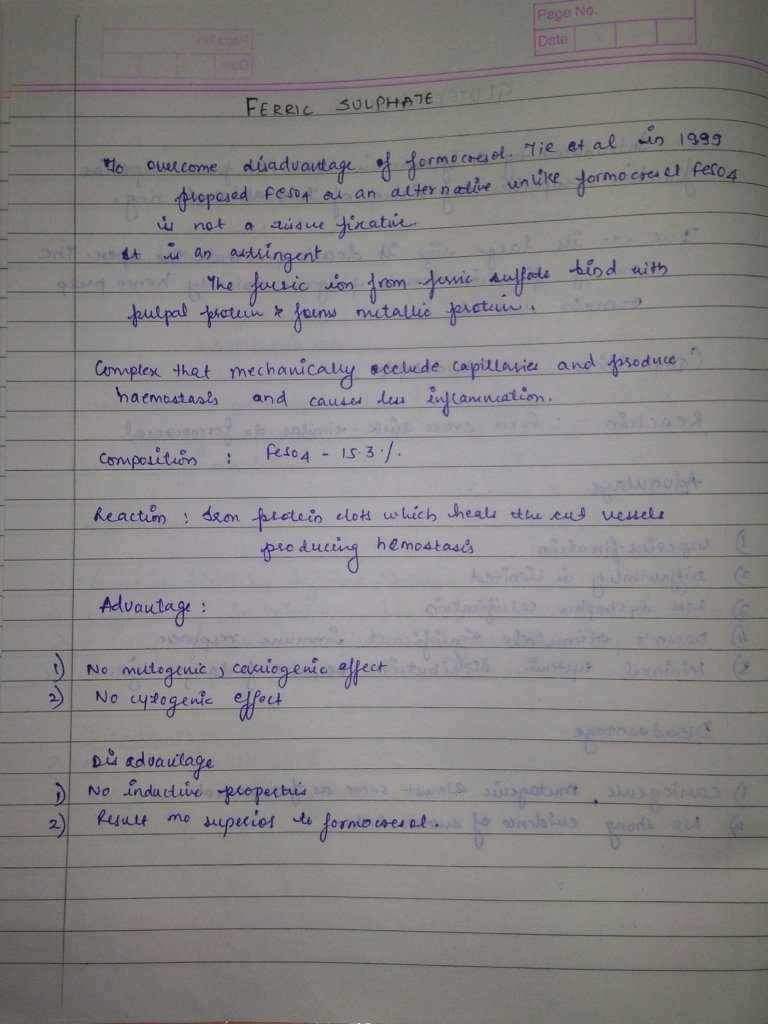 Page No.
Date
FERRIC SULPHATE
To overcome disadvantage of formocresol. Tie et al in 1999
proposed FeSO4 as an alternative unlike formocresol FeSO4
is not a tissue fixative.
It is an astringent
The ferric ion from ferric sulfate bind with
pulpal protein & forms metallic protein.
Complex that mechanically occlude capillaries and produce
haemostasis and causes less inflammation.
Composition : FeSO4 - 15.3%.
Reaction : Iron protein clots which heals the cut vessels
producing hemostasis
Advantage :
1) No mutogenic, cariogenic effect
2) No cytogenic effect
Dis advantage
1) No inductive properties
2) Result no superior to formocresol.